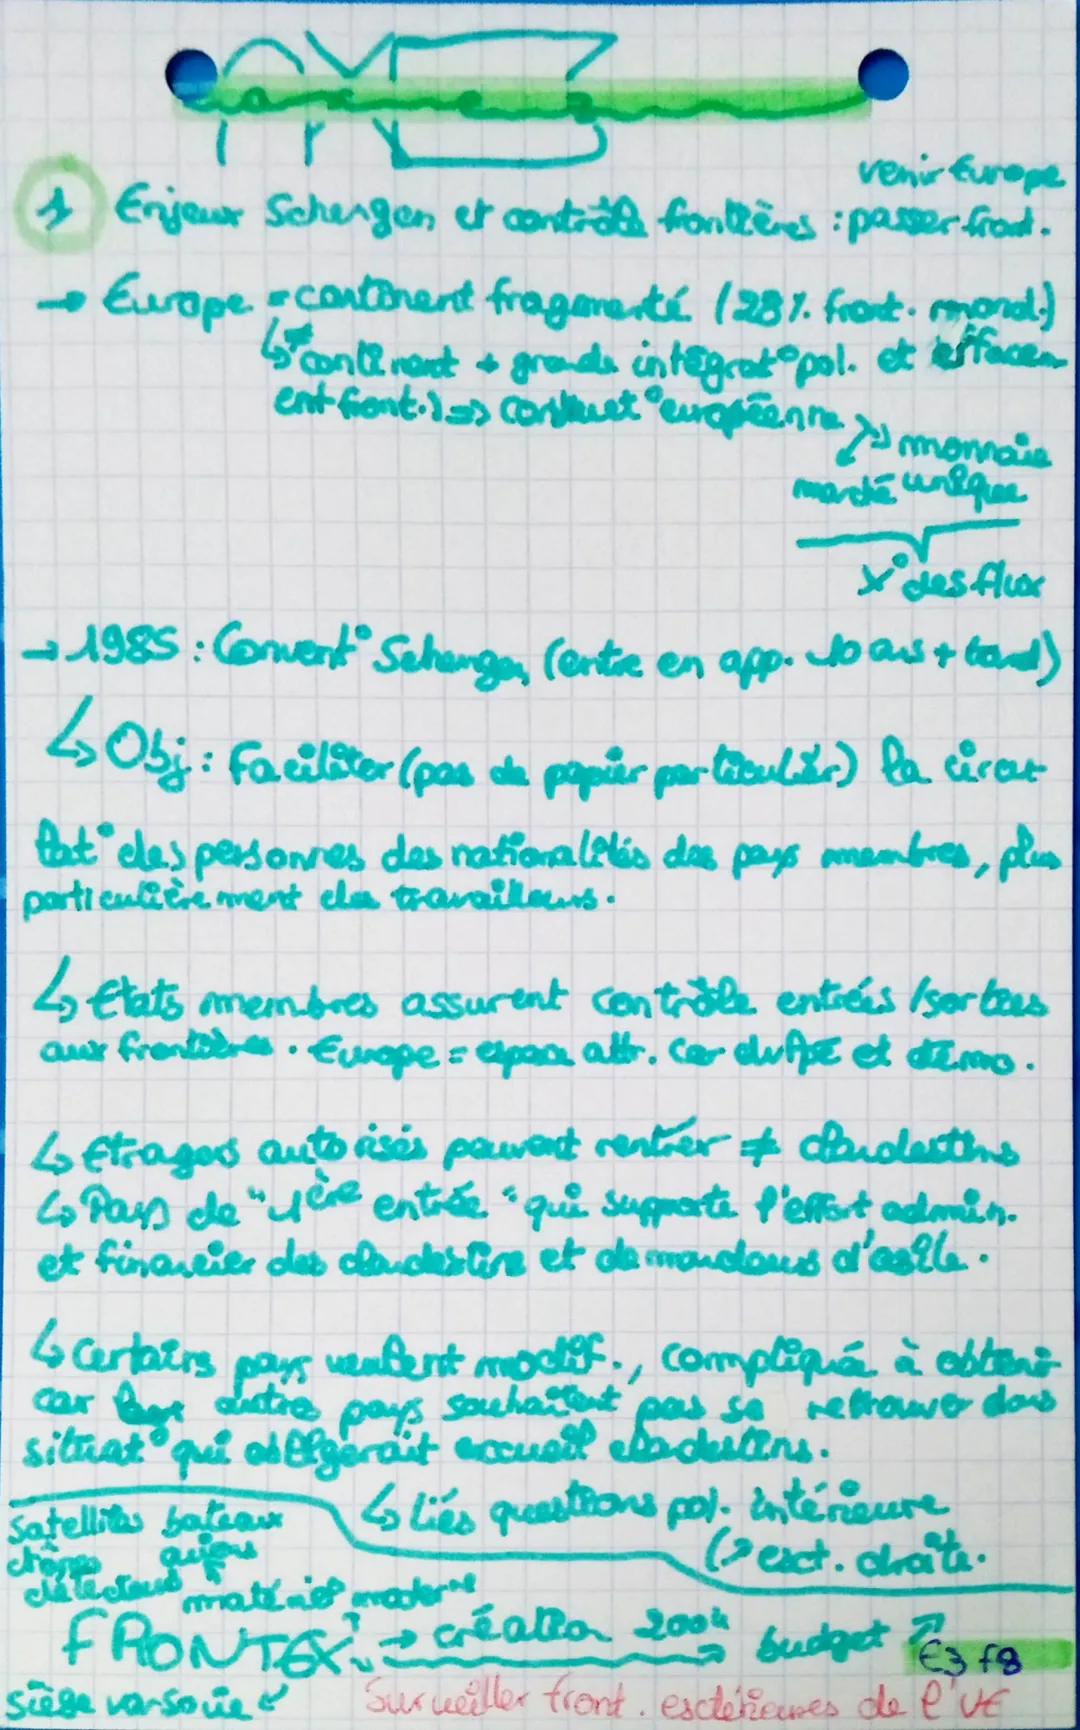 AXE 2
venir Europe
1 Enjeux Schengen et contrôle frontières : passer front.
→ Europe = continent fragmenté (28% front. mond.)
↳ ≠ continent + grande intégrat° pol. et effacem
ent front.) => construct° européenne ↘ monnaie
marché unique
x° des flux
→ 1985 : Convent° Schengen (entre en app. 10 ans + tard)
↳ Obj : Faciliter (pas de papier particulier) la circu
lat° des personnes des nationalités des pays membres, plus
particulièrement des travailleurs.
↳ Etats membres assurent contrôle entrées / sorties
aux frontières. Europe = espace attr. car dvpé et démo.
↳ Etragers autorisés peuvent rentrer ≠ clandestins
↳ Pays de "1ère entrée" qui supporte l'effort admin.
et financier des clandestins et demandeurs d'asile.
↳ Certains pays veulent modif., compliqué à obtenir
car les autres pays souhaitent pas se retrouver dans
situat° qui obligerait accueil clandestins.
↳ Liés questions pol. intérieure
(↗ ext. droite.
Satellites bateaux
drônes avions
détecteurs matériel moderne
FRONTEX → création 2004 → budget ↗
E3 f8
siège varsovie
Surveiller front. extérieures de l'UE